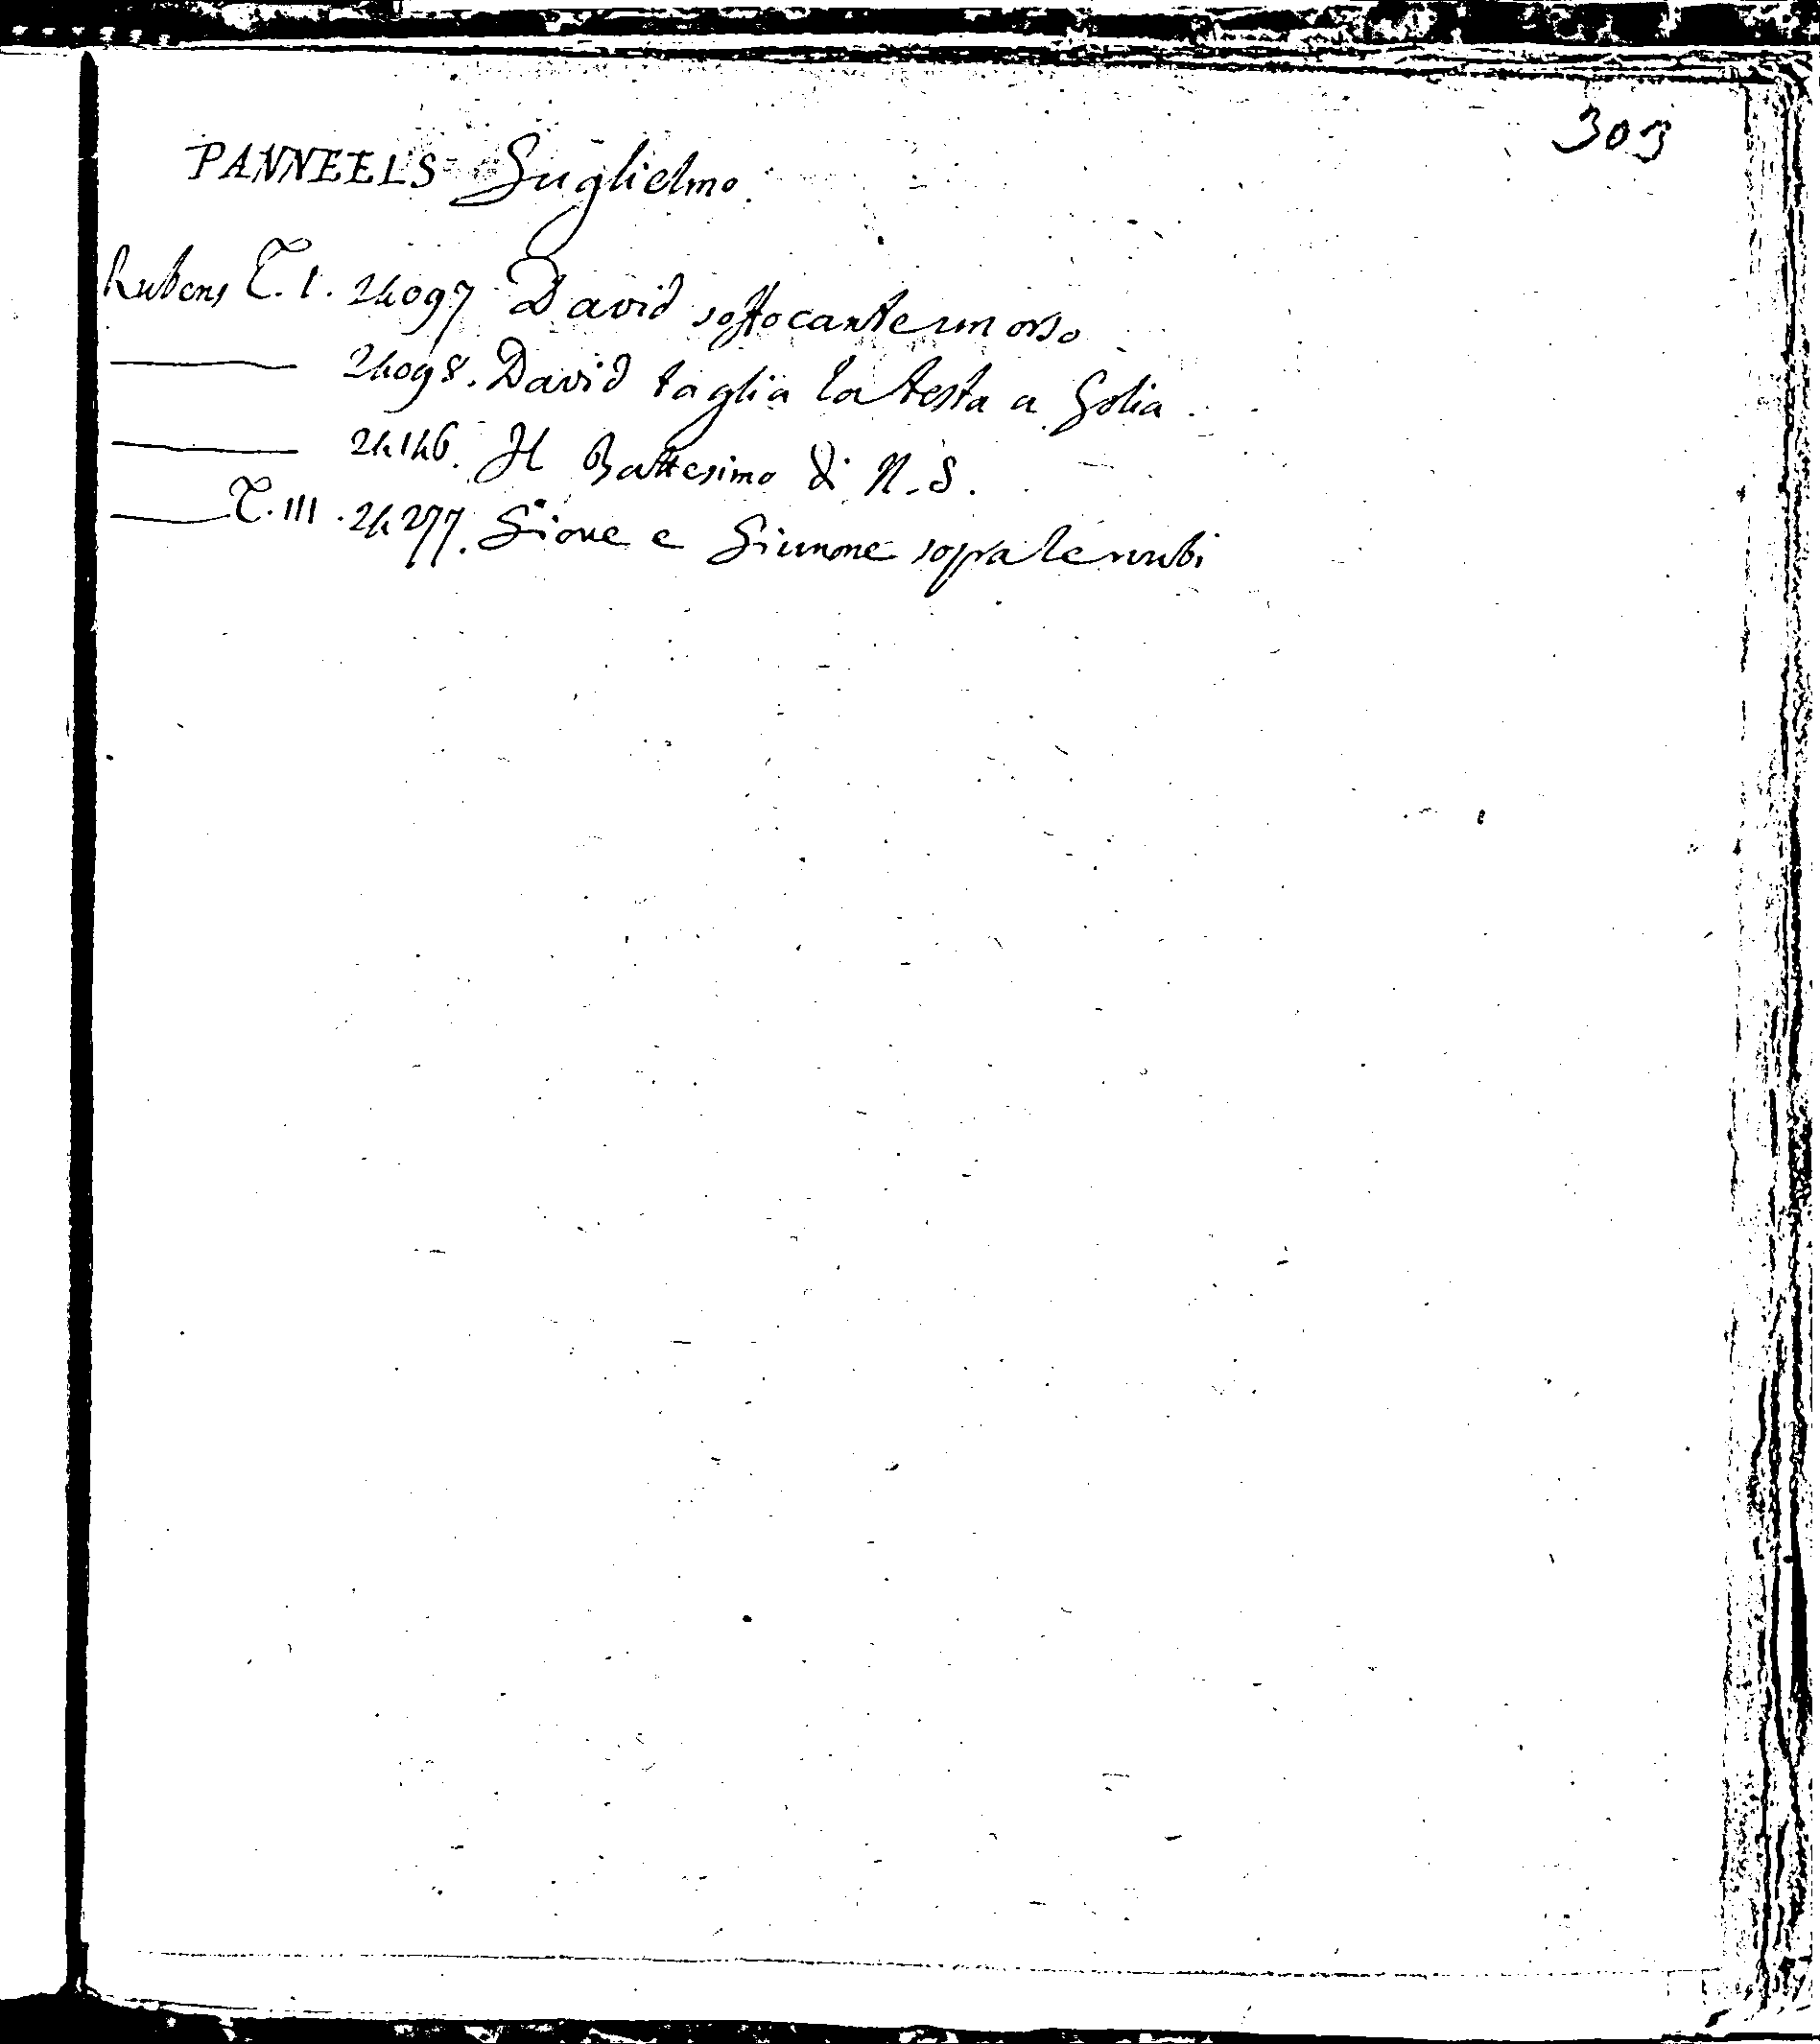 303
PANNEELS Guglielmo.
Rubens T. I. 24097 David soffocante un orso
——— 24098. David taglia la testa a Golia.
——— 24146. Il Battesimo di N. S.
——— T. III. 24277. Giove e Giunone sopra le nubi